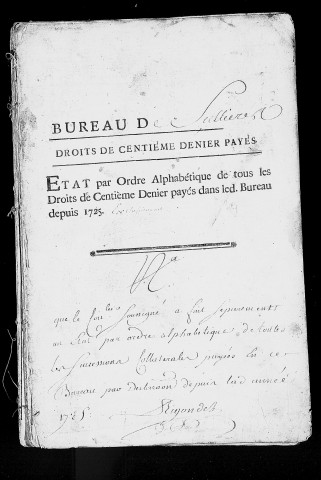 BUREAU De Sellieres
DROITS DE CENTIÉME DENIER PAYÉS
ETAT par Ordre Alphabétique de tous les
Droits de Centiéme Denier payés dans led. Bureau
depuis 1725.
Na
que le soussigné a fait separement
un Etat par ordre alphabetique de toutes
les successions collaterales payées en ce
Bureau par declaration depuis lad. année
1725.